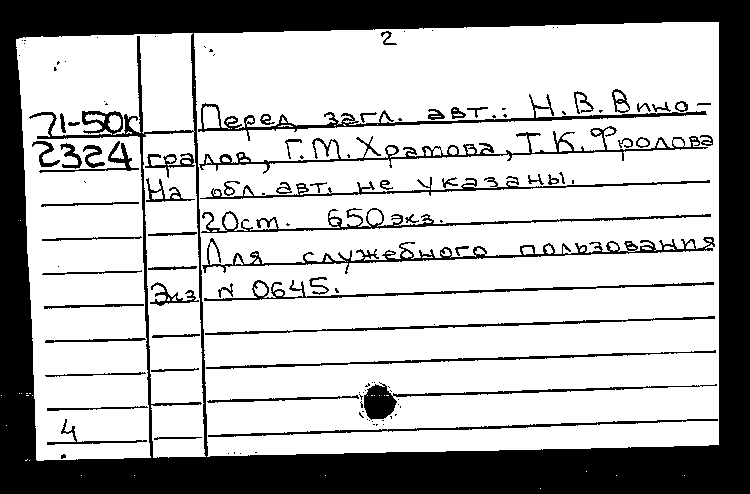 2
71-50к Перед загл. авт.: Н.В.Вино-
2324 градов, Г.М.Храмова, Т.К.Фролова
На обл. авт. не указаны.
20ст. 650экз.
Для служебного пользования
Экз N 0645.
4